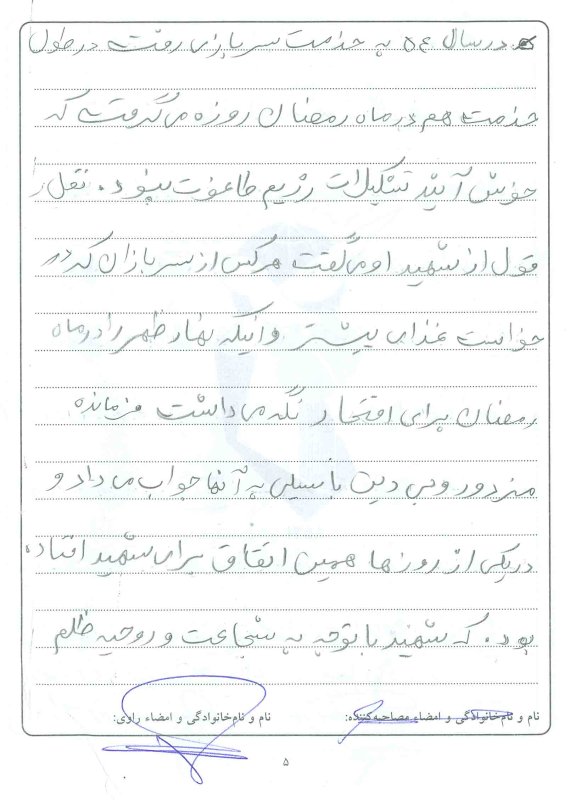 در سال ۵۴ به خدمت سربازی رفت در طول
خدمت هم در ماه رمضان روزه می گرفت که
خوش آیند تشکیلات رژیم طاغوت نبود. نقل از
قول از شهید او می گفت هر کس از سربازان که در
خواست غذای بیشتر و اینکه نهار ظهر را در ماه
رمضان برای افتخار نگه می داشت فرمانده
مزدور و بی دین با سیلی به آنها جواب می داد و
در یکی از روزها همین اتفاق برای شهید افتاده
بود. که شهید با توجه به شجاعت و روحیه ظلم
نام و نام‌خانوادگی و امضاء مصاحبه‌کننده:
نام و نام‌خانوادگی و امضاء راوی:
۵